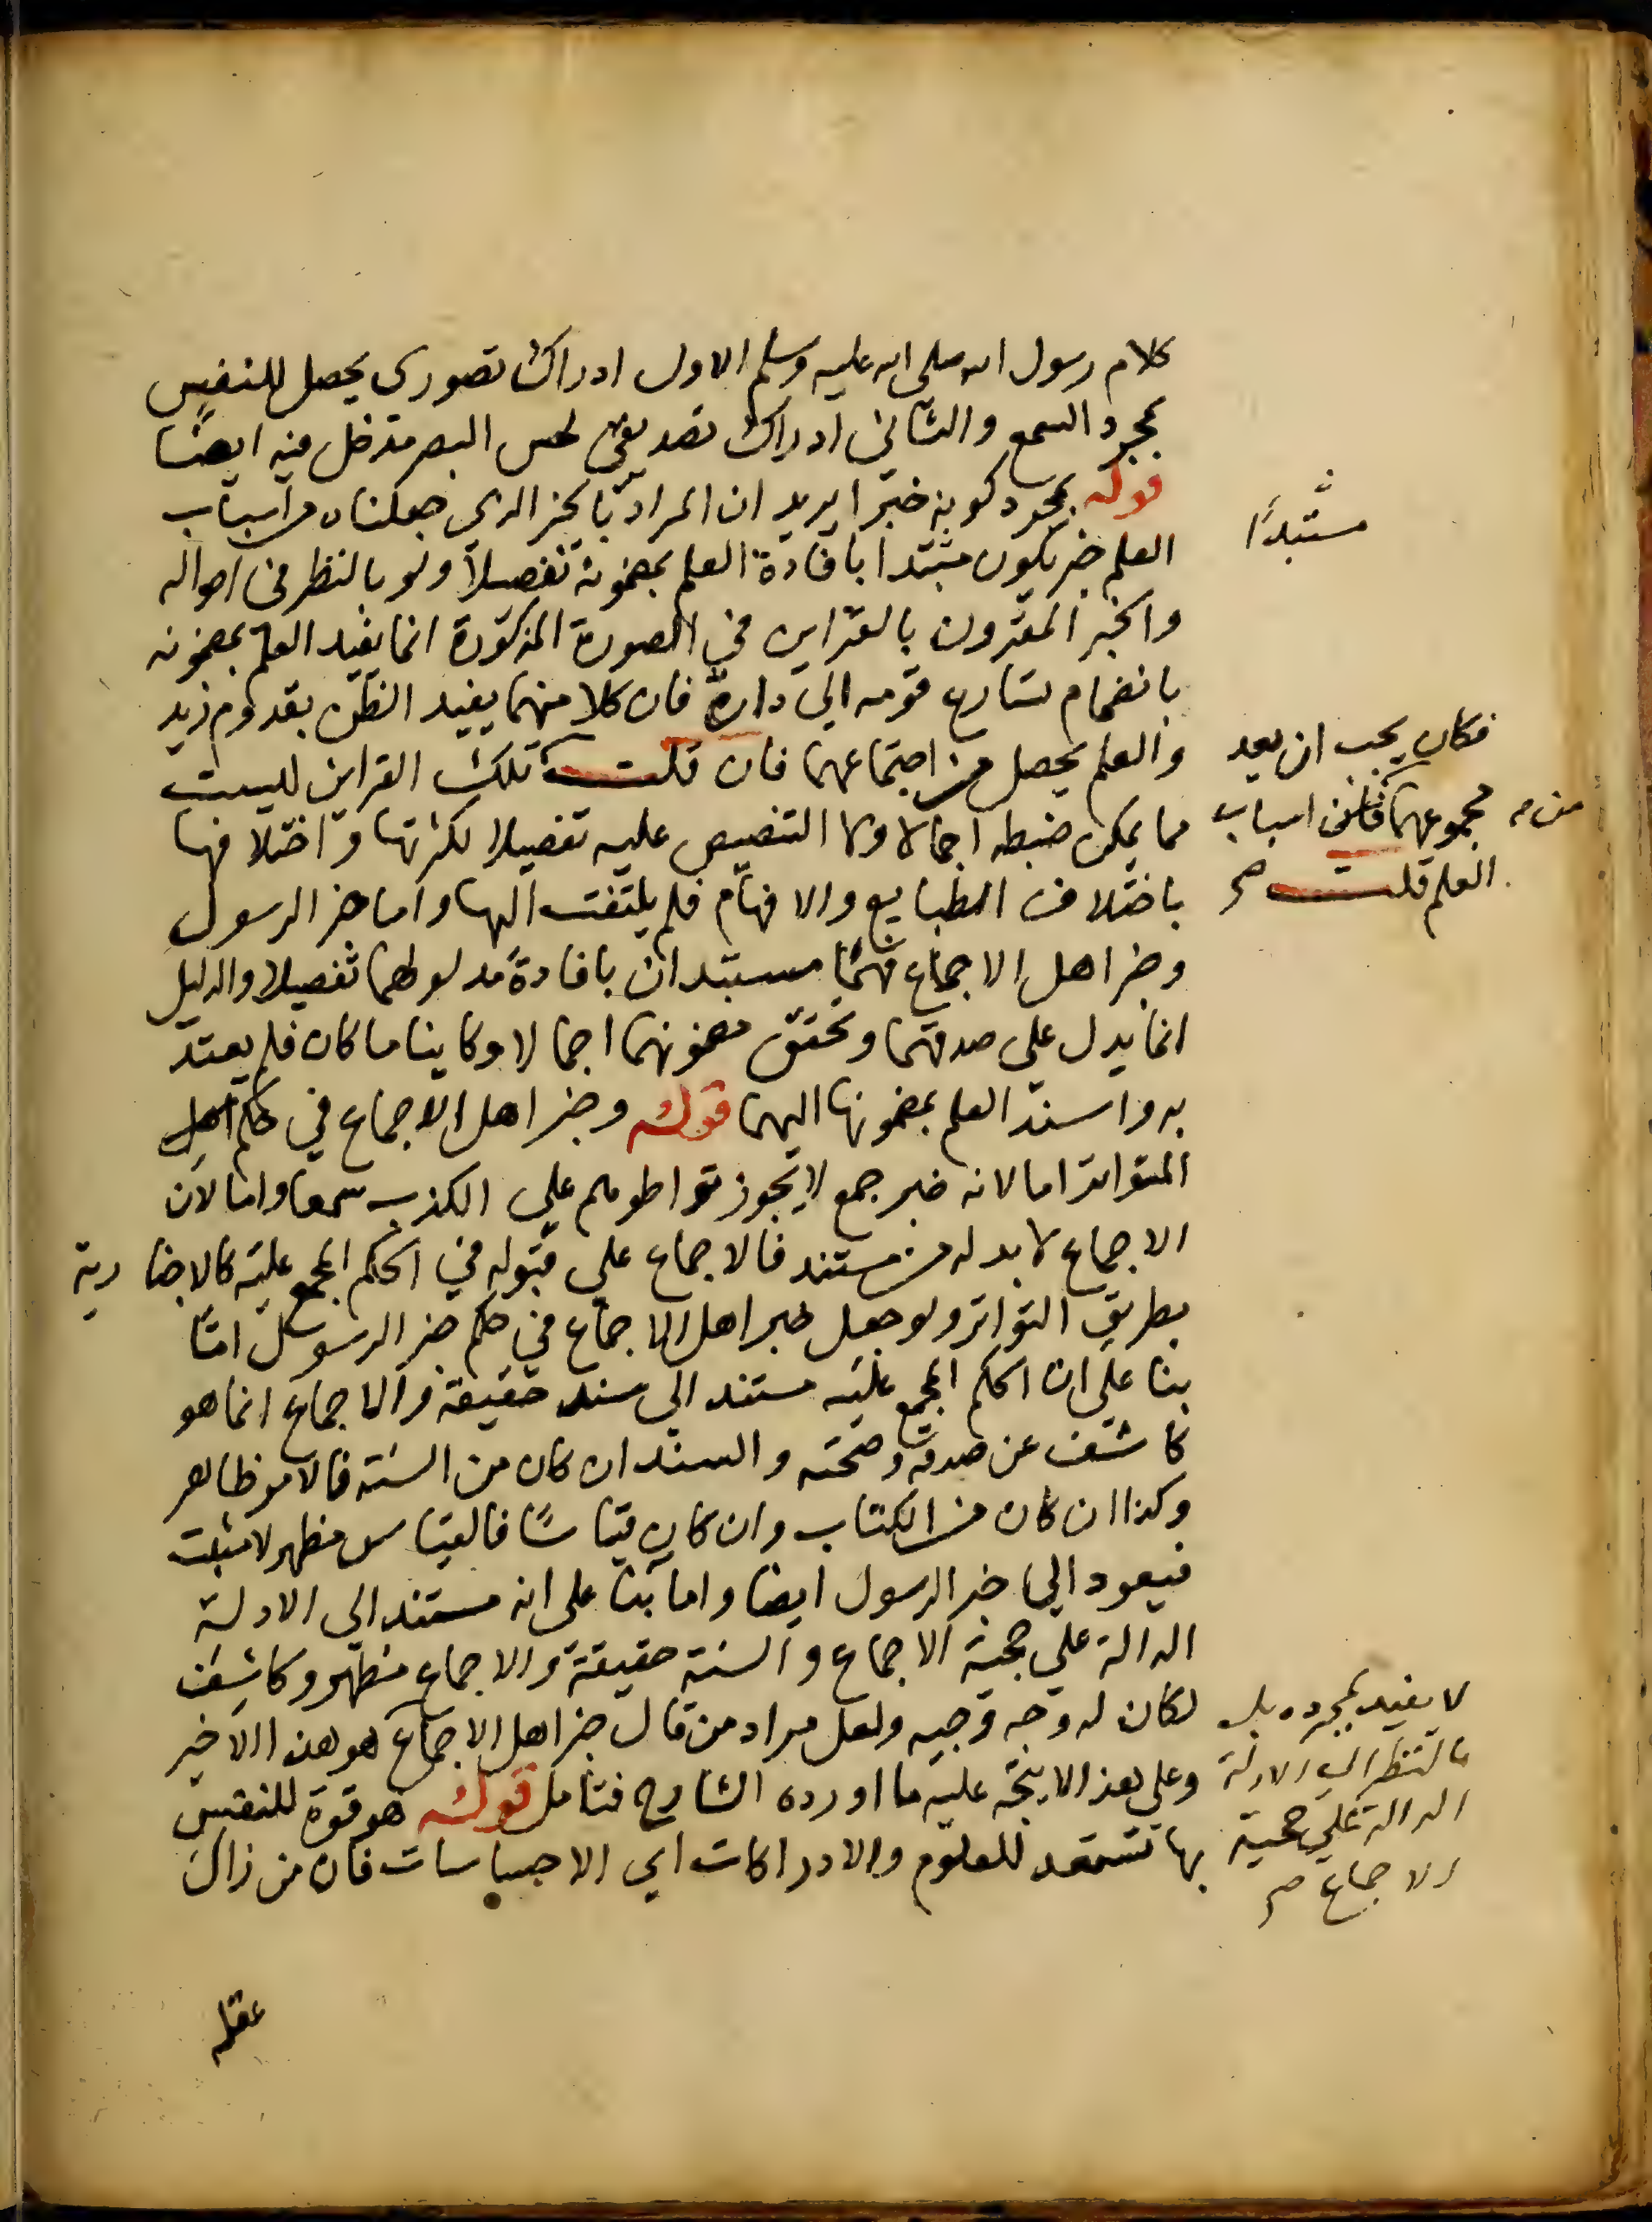 كلام رسول الله صلى الله عليه وسلم الاول ادراك تصوري يحصل للنفس
بمجرد السمع والثاني ادراك تصديقي لحس البصر مدخل فيه ايضا
قوله بمجرد كونه خبرا يريد ان المراد بالخبر الذي جعلناه من اسباب
مستبدًا
العلم خبر يكون مستبدا بافادة العلم بمضمونه تفصيلا ولو بالنظر في احواله
والخبر المقرون بالقراين في الصورة المذكورة انما يفيد العلم بمضمونه
بانضمام تسارع قومه الى داره فان كلا منهما يفيد الظن بقدوم زيد
والعلم يحصل من اجتماعهما فان قلت تلك القراين ليست
فكان يجب ان يعد
مجموعهما من اسباب
العلم قلت صح
مما يمكن ضبطه اجمالا ولا التنصيص عليه تفصيلا لكثرتها واختلافها
باختلاف الطبايع والافهام فلم يلتفت اليها واما خبر الرسول
وخبر اهل الاجماع فهما مستبدان بافادة مدلولهما تفصيلا والدليل
انما يدل على صدقهما وتحقق مضمونهما اجمالا وكاينا ما كان فلم يعتد
به واسند العلم بمضمونها اليهما قوله وخبر اهل الاجماع في حكم اهل
المتواتر اما لانه خبر جمع لا يجوز تواطوهم على الكذب سمعا واما لان
الاجماع لا بد له من مستند فالاجماع على قبوله في الحكم المجمع عليه كالاخبا ربه
بطريق التواتر ولو جعل خبر اهل الاجماع في حكم خبر الرسول اما
بنا على ان الحكم المجمع عليه مستند الى سنده حقيقة والاجماع انما هو
كاشف عن صدقه وصحته والسند ان كان من السنة فالامر ظاهر
وكذا ان كان من الكتاب وان كان قياسًا فالقياس مظهر لا مثبت
فيعود الى خبر الرسول ايضا واما بنا على انه مستند الى الادلة
الدالة على حجية الاجماع والسنة حقيقة والاجماع مظهر وكاشف
لكان له وجه وجيه ولعل مراد من قال خبر اهل الاجماع هو هذا الاخير
لا يفيد بمجرده بل
بالنظر الى الادلة
الدالة على حجية
الاجماع صح
وعلى هذا لا يتجه عليه ما اورده الشارح فتامل قوله هو قوة للنفس
بها تستعد للعلوم والادراكات اي الاحساسات فان من زال
عقله